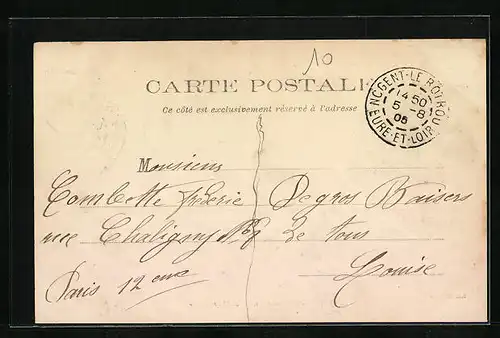 10
CARTE POSTALE
Ce côté est exclusivement réservé à l'adresse
NOGENT-LE-ROTROU
14 50
5 -8
05
EURE-ET-LOIR
Monsieur
Combotte frederie
rue Chaligny No 8
Paris 12 eme
De gros Baisers
de tous
Louise